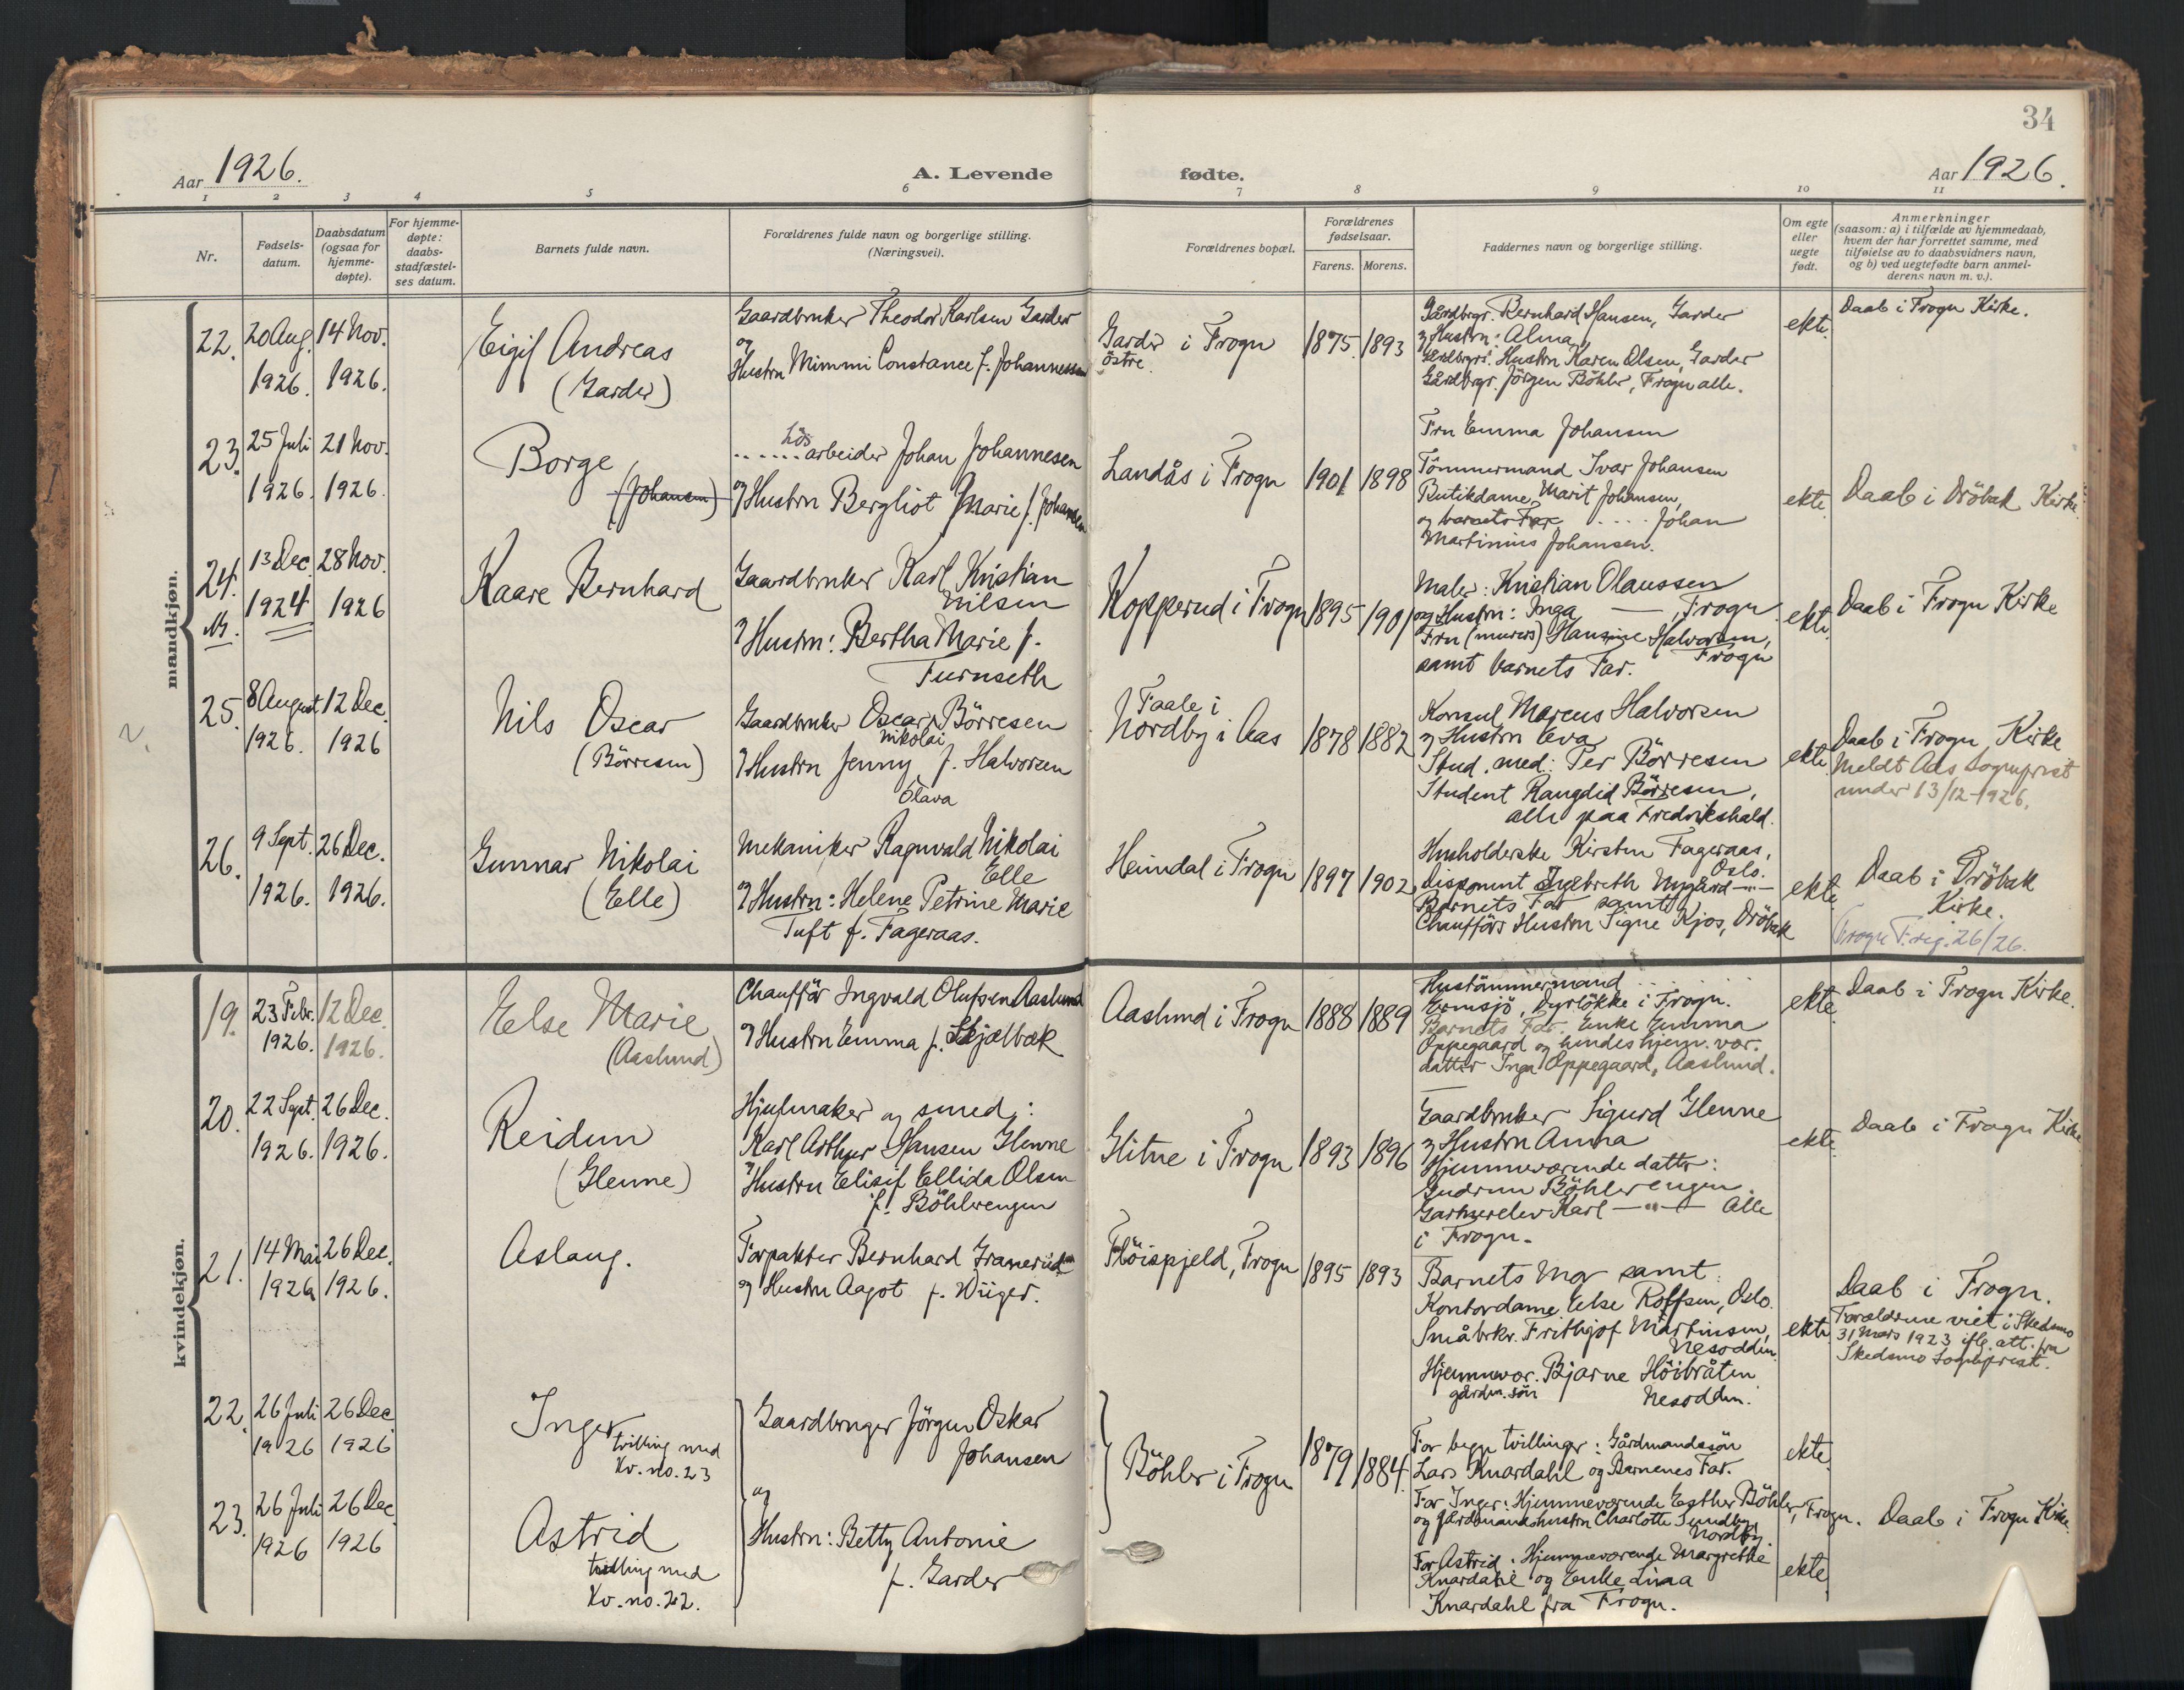 34
Aar 1926. A. Levende fødte. Aar 1926.
1 2 3 4 5 6 7 8 9 10 11
Nr.
Fødsels-
datum.
Daabsdatum
(ogsaa for
hjemme-
døpte).
For hjemme-
døpte:
daabs-
stadfæstel-
ses datum.
Barnets fulde navn.
Forældrenes fulde navn og borgerlige stilling.
(Næringsvei).
Forældrenes bopæl.
Forældrenes
fødselsaar.
Farens. Morens.
Faddernes navn og borgerlige stilling.
Om egte
eller
uegte
født.
Anmerkninger
(saasom: a) i tilfælde av hjemmedaab,
hvem der har forrettet samme, med
tilføielse av to daabsvidners navn,
og b) ved uegtefødte barn anmel-
derens navn m. v.).
mandkjøn.
22.
20 Aug.
1926.
14 Nov.
1926.
Eigil Andreas
(Garder)
Gaardbruker Theodor Karlsen Garder
og
Hustru Mimmi Constance f. Johannessen
Garder i Frogn
östre.
1875. 1893
Gårdbrgr. Bernhard Hansen, Garder
og Hustru: Alma,
Gårdbrgrs. Hustru Karen Olsen, Garder
Gårdbrgr. Jörgen Böhler, Frogn alle.
ekte.
Daab i Frogn Kirke.
23.
25 Juli
1926.
21 Nov.
1926.
Borge
(Johansen)
Lös
......arbeider Johan Johannesen
og Hustru Bergliot Marie f. Johansen
Landås i Frogn
1901 1898
Fru Emma Johansen
Tömmermand Ivar Johansen
Butikdame Marit Johansen,
og barnets Far .... Johan
Martinius Johansen.
ekte.
Daab i Dröbak Kirke.
24.
NB.
13 Dec.
1924
28 Nov.
1926
Kaare Bernhard
Gaardbruker Karl Kristian
Nilsen
og Hustru: Bertha Marie f.
Furuseth
Kopperud i Frogn
1895 1901
Maler: Kristian Olaussen
og Hustru: Inga — , Frogn
Fru (murers) Hansine Halvorsen,
Frogn
samt barnets Far.
ekte.
Daab i Frogn Kirke
25.
8 August
1926.
12 Dec.
1926
Nils Oscar
(Börresen)
Gaardbruker Oscar Börresen
Nikolai
og Hustru Jenny f. Halvorsen
Olava
Faale i
Nordby i Aas
1878 1882
Konsul Marcus Halvorsen
og Hustru Eva
Stud. med: Per Börresen
Student Rangdid Börresen,
alle paa Fredrikshald.
ekte
Daab i Frogn Kirke
Meldt Aas Sogneprest
under 13/12-1926.
26.
9 Sept.
1926.
26 Dec.
1926.
Gunnar Nikolai
(Elle)
Mekaniker Ragnvald Nikolai
Elle
og Hustru: Helene Petrine Marie
Tuft f. Fageraas.
Heimdal i Frogn
1897 1902
Husholderske Kirsten Fageraas,
Oslo.
Disponent Ingebreth Nygård —"—
Barnets Far samt
Chaufförs Hustru Signe Kjos, Dröbak
ekte.
Daab i Dröbak
Kirke.
Frogn F.reg. 26/26.
kvindekjøn.
19.
23 Febr.
1926.
12 Dec.
1926.
Else Marie
(Aaslund)
Chaufför Ingvald Olufsen Aaslund
og Hustru Emma f. Skjælbæk
Aaslund i Frogn
1888 1889
Hustömmermand ......
Ermsjö, Dyrlökke i Frogn.
Barnets Far. Enke Emma
Oppegaard og hendes hjem. vær.
datter Inga Oppegaard, Aaslund.
ekte.
Daab i Frogn Kirke.
20.
22 Sept.
1926.
26 Dec.
1926.
Reidun
(Glenne)
Hjulmaker og smed:
Karl Arthur Hansen Glenne
og Hustru Elisif Ellida Olsen
f. Böhlerengen
Glitne i Frogn
1893 1896
Gaardbruker Sigurd Glenne
og Hustru Anna
Hjemmeværende datter:
Gudrun Böhlerengen.
Gartnerelev Karl —"— Alle
i Frogn.
ekte.
Daab i Frogn Kirke.
21.
14 Mai
1926
26 Dec.
1926.
Aslaug.
Forpakter Bernhard Granerud
og Hustru Aagot f. Wüger.
Flöispjeld, Frogn
1895 1893
Barnets Mor samt:
Kontordame Else Roffsen, Oslo.
Småbrkr. Frithjof Martinsen,
Nesodden.
Hjemmevær. Bjarne Höibråten
gårdm. sön Nesodden.
ekte
Daab i Frogn.
Forældrene viet i Skedsmo
31 Mars 1923 ifle. att. fra
Skedsmo Sogneprest.
22.
26 Juli
1926
26 Dec.
1926
Inger
tvilling med
Kv. no. 23
Gaardbruger Jörgen Oskar
Johansen
og
Hustru: Betty Antonie
f. Garder
Böhler i Frogn
1879 1884.
For begge tvillinger: Gårdmandssön
Lars Knardahl og Barnenes Far.
For Inger: Hjemmeværende Esther Böhler, Frogn.
og gårdmandshustru Charlotte Sundby,
Nordby.
ekte.
23.
26 Juli
1926
26 Dec.
1926
Astrid
tvilling med
Kv. no. 22.
For Astrid: Hjemmeværende Margrethe
Knardahl og Enke Lina
Knardahl fra Frogn.
ekte
Daab i Frogn Kirke.